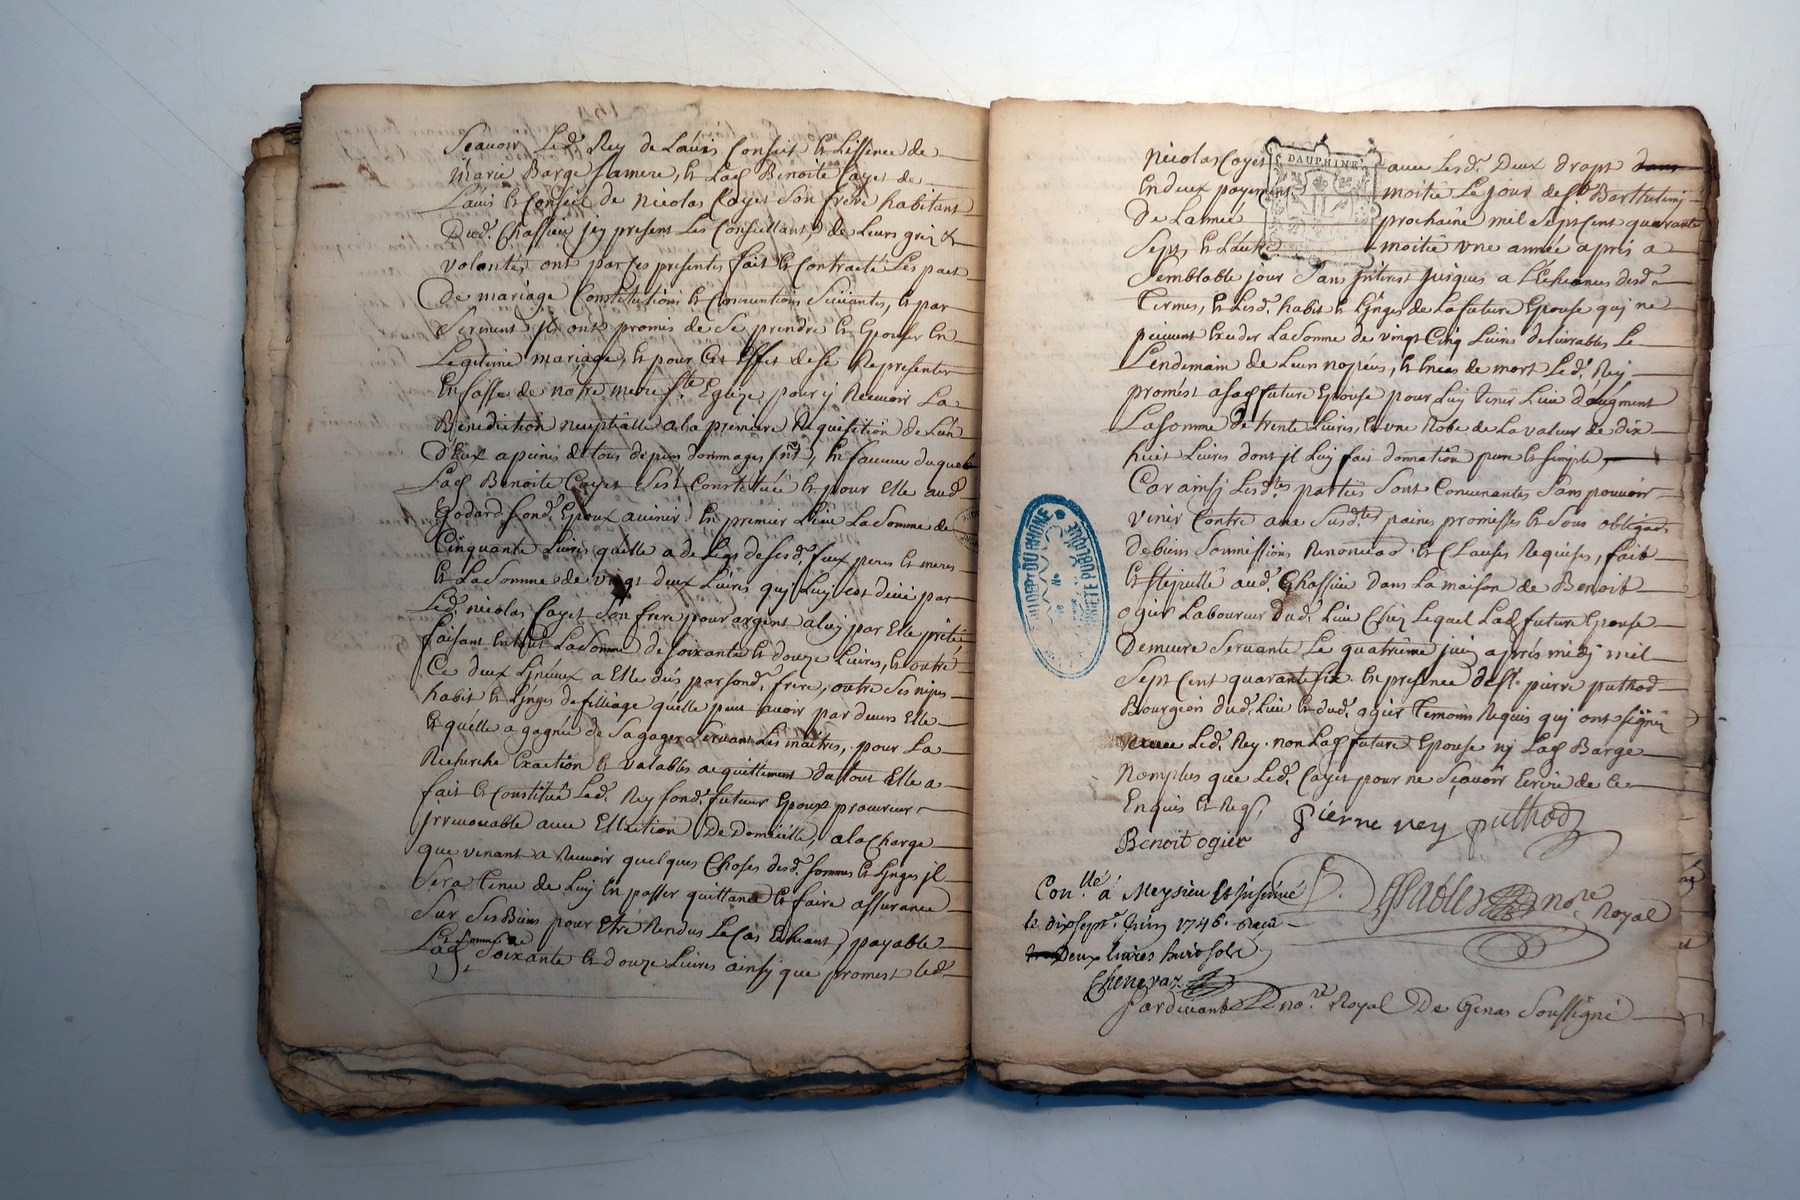 Sçavoir Led. Rey de Lavis Conseil et Lissence de
Marie Barge sa mere, et Lad. Benoite Cayet de
Lavis et Conseil de Nicolas Cayet son frere habitant
Dud. Chassieu jcy present Les Conseillant, de Leurs grés et
volontés ont par ces presentes fait et Contracté Les pact
De mariage Constitutions et Conventions Suivantes, et par
Serment jls ont promis de Se prendre et Epouser en
Legitime mariage, et pour Cet Effet de se Representer
En fasse de notre mere Ste Eglize pour y Recevoir La
Benediction nuptialle a la premiere Requisition de Lun
D'Eux a peines de tous depens dommages jnt, En faveur duquel
Lad. Benoite Cayet s'est Constituée et pour Elle aud.
Godard fond. Epoux avenir En premier Lieu La Somme de
Cinquante Livres quelle a de Legs de sesd. feux peres et meres
et La Somme de vingt deux Livres qui Luy est düe par
Led. nicolas Cayet son frere pour argent a luy par Elle prété
faisant En tout La Somme de soixante et douze Livres, et outre
Ce deux Linceux a Elle dus par sond. frere, outre ses nipes
habit et Linges de filliage quelle peut avoir par devers Elle
Et quelle a gagnée de Sa gages Servant Les maitres, pour La
Recherche Exaction et valables acquittement du tout Elle a
fait et Constitué Led. Rey fond. futur Epoux procureur
jrrevocable avec Ellection De Domicille, a la Charge
que venant a Recevoir quelques Choses desd. sommes et Linges jl
Sera tenu de Luy En passer quittance et faire assurance
Sur Ses Biens pour Etre Rendus Le Cas Echeant, payable
Lad. Somme de Soixante et douze Livres ainsy que promest led.
Nicolas Cayet avec Lesd. Deux draps dans
En deux payement moitié Le jour de St Barthelemy
De Lannée prochaine mil Sept Cent quarante
Sept, et Lautre moitié une année après a
Semblable jour Sans jnterest jusques a LEcheances desd.
Termes, et Lesd. habit et Linges de La future Epouse qui ne
peuvent Exceder La Somme de vingt Cinq Livres delivrables Le
Lendemain de Leur nopces, et En cas de mort Led. Rey
promest a sad. future Epouse pour Luy Tenir Lieu d'augment
La Somme de trente Livres, et une Robe de La valeur de dix
huit Livres dont jl Luy fait donnation pure et simple
Car ainsy Lesdtes parties Sont Convenantes Sans pouvoir
venir Contre aux Susdtes paines promesses et Sous obligad.
de biens Sommissions Renonciaõ. et Clauses Requises, fait
et stipullé aud. Chassieu dans La maison de Benoit
ogier Laboureur dud. Lieu Chez Lequel Lad. future Epouse
Demeure Servante Le quatrieme juin après midy mil
Sept Cent quarante Six En presence de Sr. pierre puthod
Bourgeois dud. Lieu et dud. ogier Temoins Requis qui ont signé
avec Led. Rey non Lad. future Epouse ny Lad. Barge
Nomplus que Led. Cayet pour ne Sçavoir Ecrire de Ce
Enquis et Req.
pierre rey puthod
Benoit ogier
nore Royal
DAUPHINE
Conlle á Meysieu Et jnsinué
le dix Sept. Juin 1746. Reçu
Deux livres huit sols
Chenevaz
Par devant nore. Royal De Genas Soussigné
DU DEPt DU RHONE
PROPRIETE PUBLIQUE